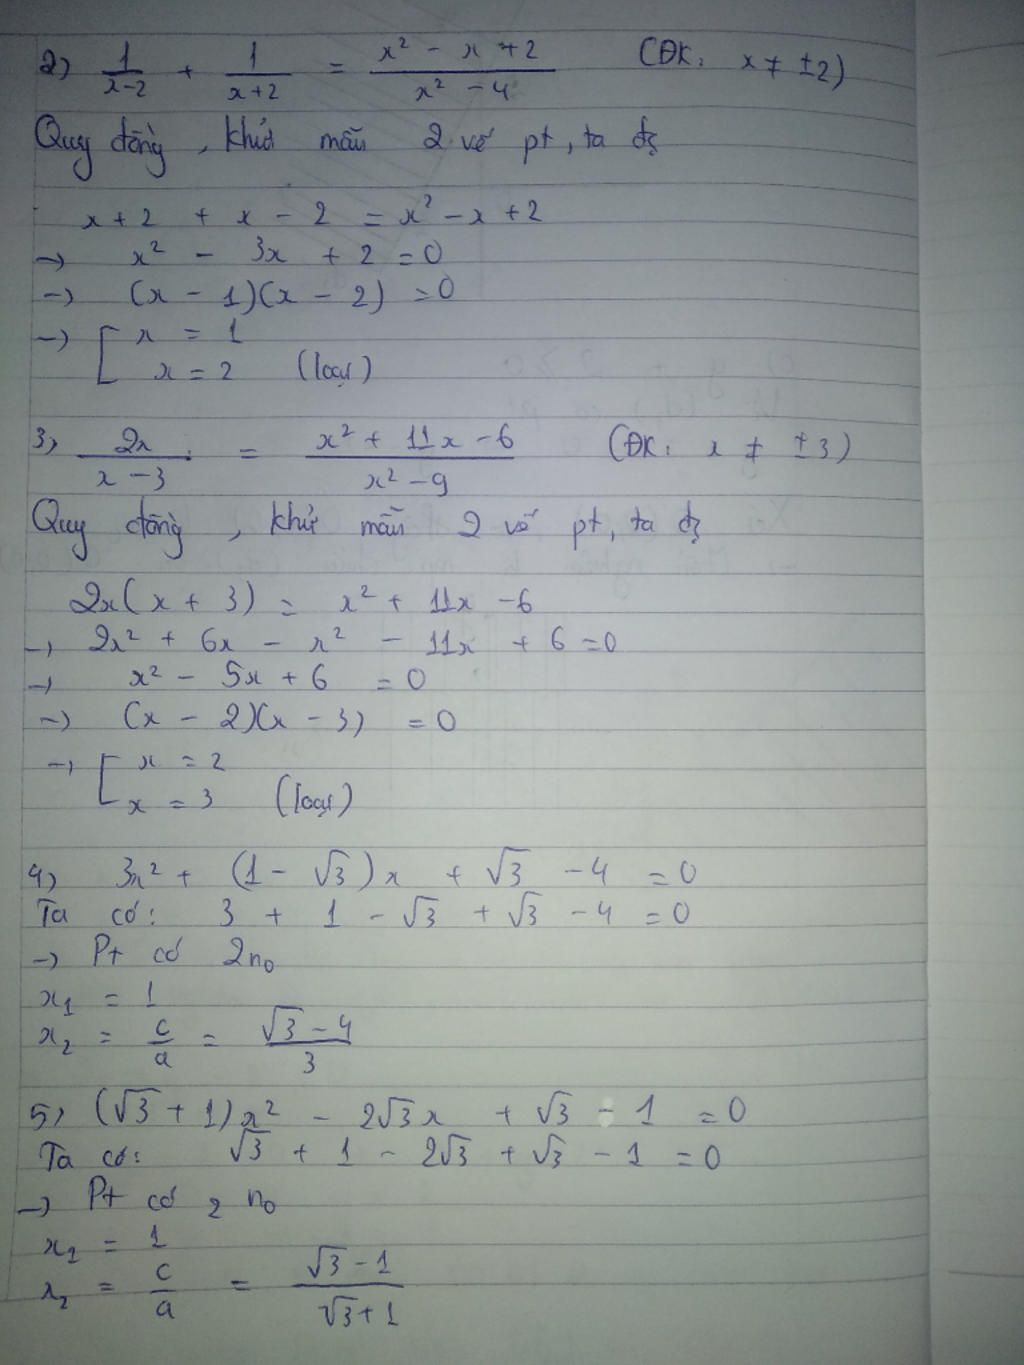 2) 1/(x-2) + 1/(x+2) = (x² - x + 2)/(x² - 4) (ĐK: x ≠ ±2)
Quy đồng, khử mẫu 2 vế pt, ta đc
x + 2 + x - 2 = x² - x + 2
→ x² - 3x + 2 = 0
→ (x - 1)(x - 2) = 0
→ [ x = 1
x = 2 (loại)
3) 2x/(x - 3) = (x² + 11x - 6)/(x² - 9) (ĐK: x ≠ ±3)
Quy đồng, khử mẫu 2 vế pt, ta đc
2x(x + 3) = x² + 11x - 6
→ 2x² + 6x - x² - 11x + 6 = 0
→ x² - 5x + 6 = 0
→ (x - 2)(x - 3) = 0
→ [ x = 2
x = 3 (loại)
4) 3x² + (1 - √3)x + √3 - 4 = 0
Ta có: 3 + 1 - √3 + √3 - 4 = 0
→ Pt có 2 n₀
x₁ = 1
x₂ = c/a = (√3 - 4)/3
5) (√3 + 1)x² - 2√3x + √3 - 1 = 0
Ta có: √3 + 1 - 2√3 + √3 - 1 = 0
→ Pt có 2 n₀
x₁ = 1
x₂ = c/a = (√3 - 1)/(√3 + 1)